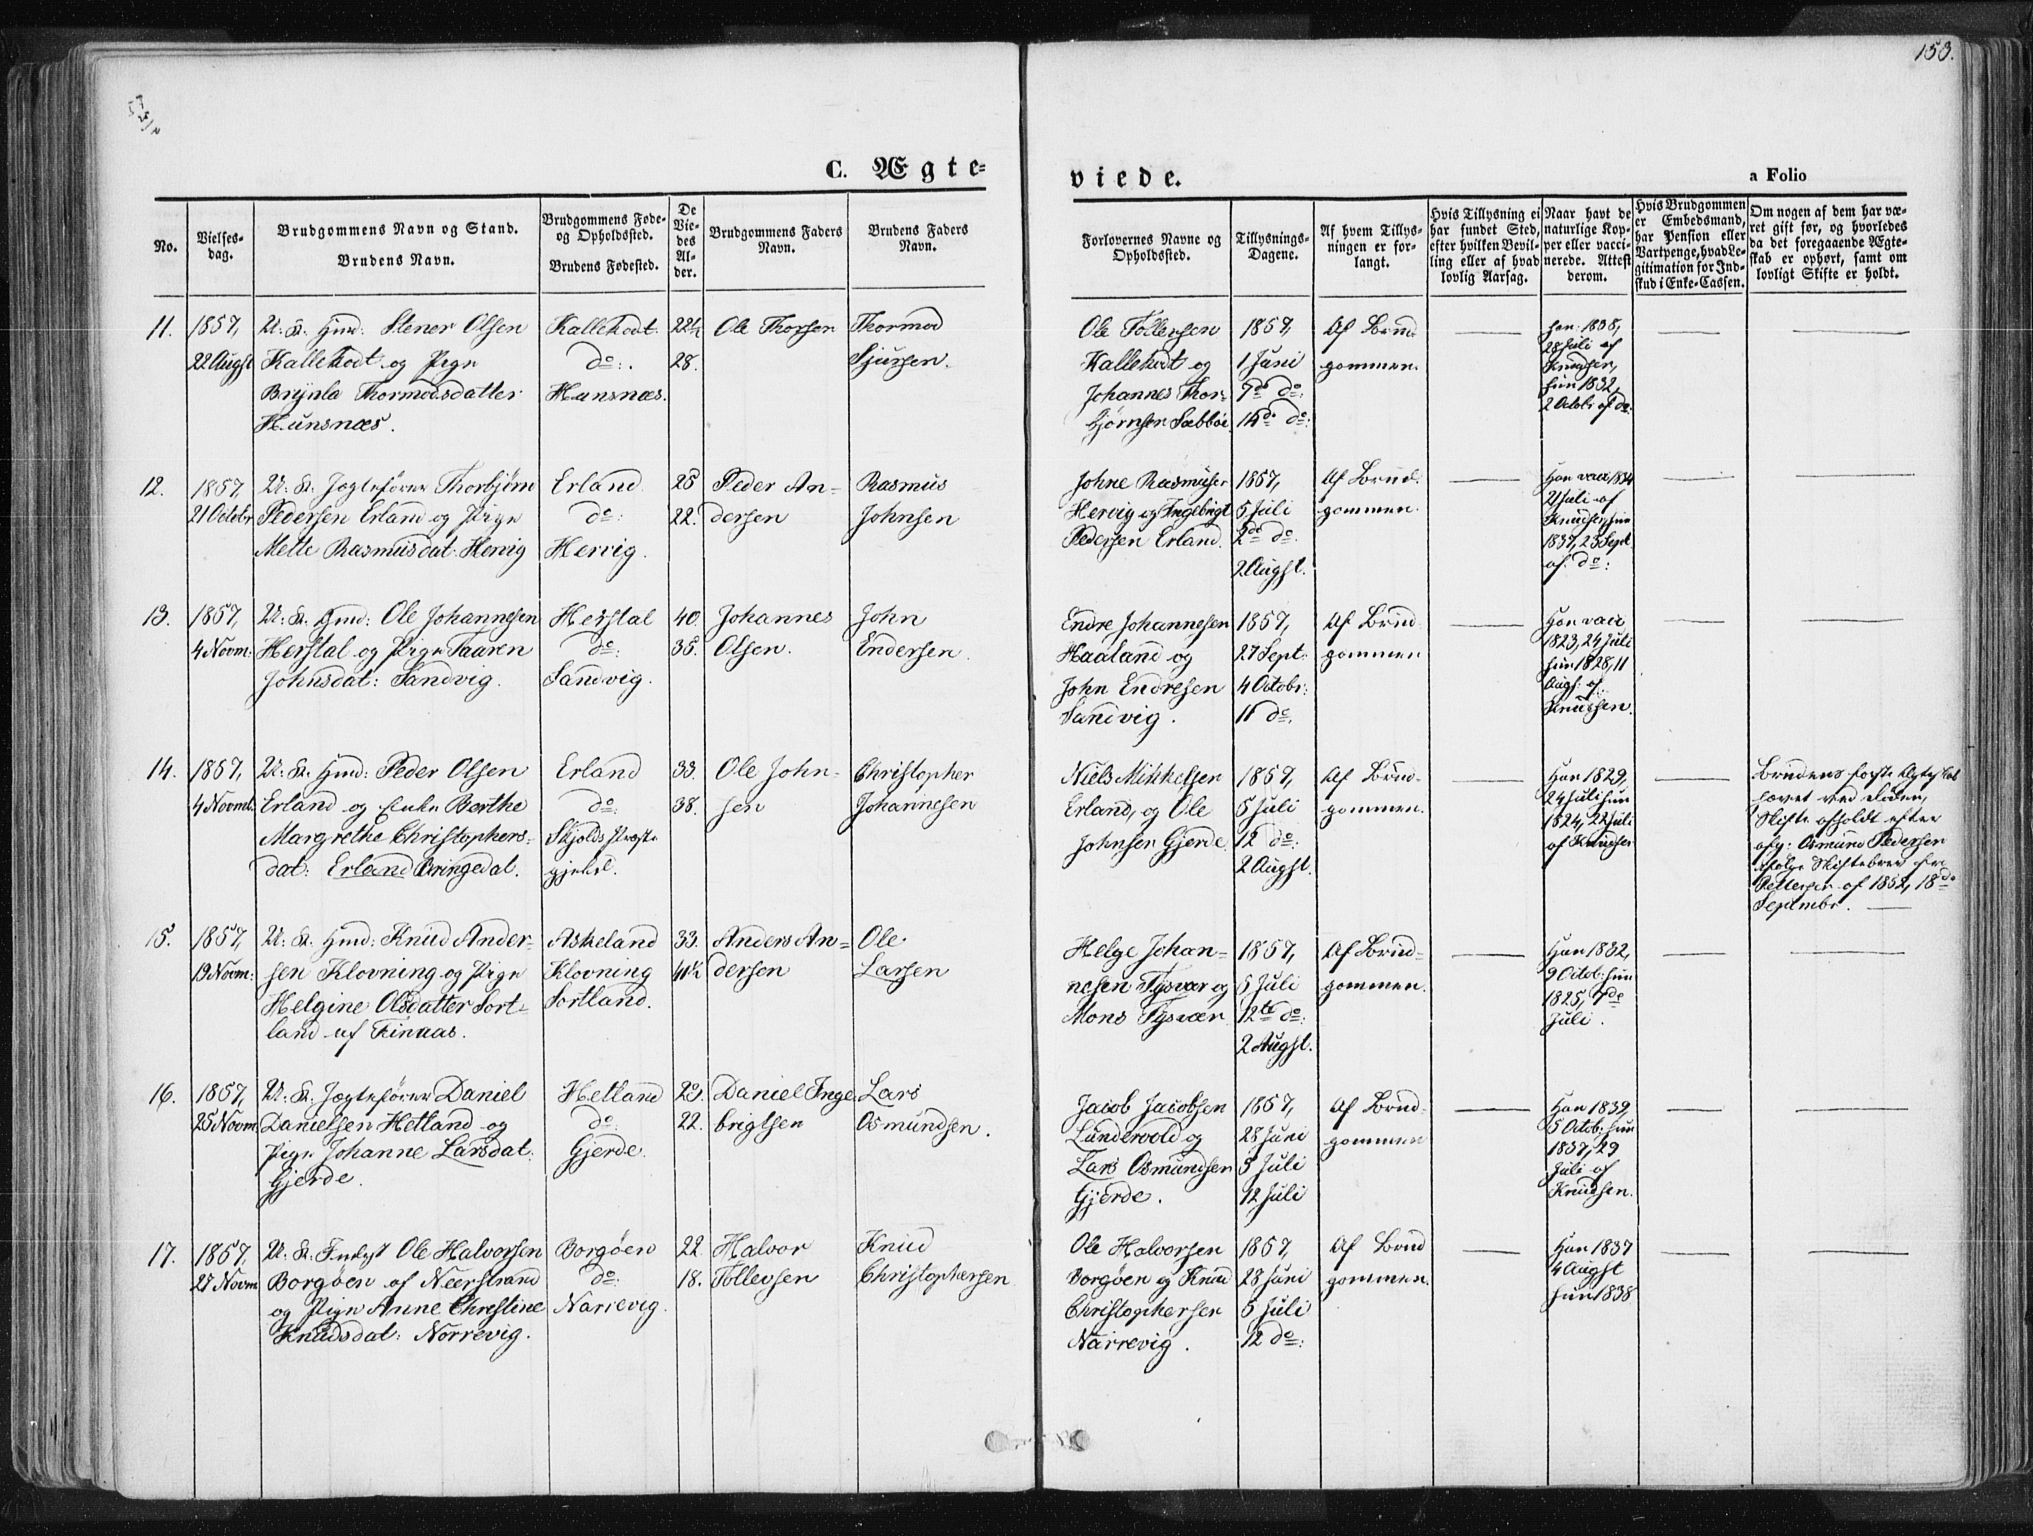 153.
C. Ægte-
viede.
a Folio
No.
Vielses-
dag.
Brudgommens Navn og Stand.
Brudens Navn.
Brudgommens Føde-
og Opholdssted.
Brudens Fødested.
De
Vie-
des
Al-
der.
Brudgommens Faders
Navn.
Brudens Faders
Navn.
Forlovernes Navne og
Opholdssted.
Tillysnings-
Dagene.
Af hvem Tillys-
ningen er for-
langt.
Hvis Tillysning ei
har fundet Sted,
efter hvilken Bevil-
ling eller af hvad
lovlig Aarsag.
Naar havt de
naturlige Kop-
per eller vacci-
nerede. Attest
derom.
Hvis Brudgommen
er Embedsmand,
har Pension eller
Vartpenge, hvad Le-
gitimation for Ind-
skud i Enke-Cassen.
Om nogen af dem har væ-
ret gift før, og hvorledes
da det foregaaende Ægte-
skab er ophørt, samt om
lovligt Skifte er holdt.
11.
1857,
22 Augst
U: K. Gmd: Stener Olsen
Kallekodt og Pige
Brynla Thormodsdatter
Hunsnæs.
Kallekodt
do:
Hunsnæs.
22½
28.
Ole Thorsen
Thormod
Sjursen.
Ole Tollevsen
Kallekodt og
Johannes Thor-
bjørnsen Sæbbøe
1857,
1 Juni
7de do:
14de do:
Af Brud-
gommen.
han 1838,
28 Juli af
Knudsen,
hun 1832,
2 Octobr af do.
12.
1857,
21 Octobr
U: K. Jagtefører Thorbjørn
Pedersen Erland og Pige
Mette Rasmusdat: Hervig
Erland
do:
Hervig.
25
22.
Peder An-
dersen
Rasmus
Johnsen
Johne Rasmusen
Hervig og Ingebrigt
Pedersen Erland.
1857,
5 Juli
do.
2 Augst.
Af Brud-
gommen.
Han vacc 1834
21 Juli af
Knudsen, hun
1837, 23 Sept
af. do:
13.
1857,
4 Novm:
U: K. Gmd: Ole Johannesen
Herstal og Pige Taaren
Johnsdat: Sandvig.
Herstal
do:
Sandvig.
40.
35.
Johannes
Olsen.
John
Endersen.
Endre Johannesen
Haaland og
John Endresen
Sandvig.
1857,
27 Sept:
4 Octobr:
11 do.
Af Brud-
gommen
Han vacc
1823, 24 Juli
hun 1828, 11
Augs: af
Knudsen.
14.
1857,
4 Novmb.
U: K. Gmd: Peder Olsen
Erland og Enke Berthe
Margrethe Christophers-
dat: Erland Bringedal.
Erland
do:
Skjolds Præste
gjeld.
33.
38.
Ole John-
sen
Christopher
Johannesen
Niels Mikkelsen
Erland, og Ole
Johnsen Gjerde
1857,
5 Juli
12 do:
2 Augst.
Af Brud-
gommen.
Han 1829,
24 Juli hun
1824, 22 Juli
af Knudsen
Brudens første Ægteskab
hævet ved Døden,
Skifte afholdt efter
afg: Osmund Pedersen
ifølge Skiftebrev fra
af 1852, 18de
Septembr.
15.
1857,
19 Novm:
U: K. Gmd: Knud Ander-
sen Klovning og Pige
Helgine Olsdatter Sort-
land af Finnaas.
Askeland
Klovning
Sortland.
33.
41½
Anders An-
dersen
Ole
Larsen
Helge Johan-
nesen Tysvær og
Mons Tysvær
1857,
5 Juli
12te do:
2 Augst.
Af Brud-
gommen.
Han 1832,
9 Octob: hun
1825, 7de
Juli.
16.
1857,
25 Novm
U: K. Jægtefører Daniel
Danielsen Hetland og
Pige Johanne Larsdat:
Gjerde.
Hetland
do:
Gjerde.
22.
Daniel Inge
brigtsen
Lars
Osmundsen.
Jacob Jacobsen
Lundevold og
Lars Osmundsen
Gjerde.
1857,
28 Juni
5 Juli
12 Juli
Af Brud-
gommen
Han 1839,
5 Octob: hun
1837, 29
Juli af
Knudsen.
17.
1857,
27 Novm
U: K. Inderst Ole Halvorsen
Borgøen af Neerstrand
og Pige Anne Christine
Knudsdat: Norrevig.
Borgøen
do:
Narrevig.
22.
18.
Halvor
Tollevsen
Knud
Christophersen
Ole Halvorsen
Borgøen og Knud
Christophersen
Narrevig.
1857,
28 Juni
5 Juli
12 do:
Af Brud
gommen.
Han 1837
4 Augst
hun 1838